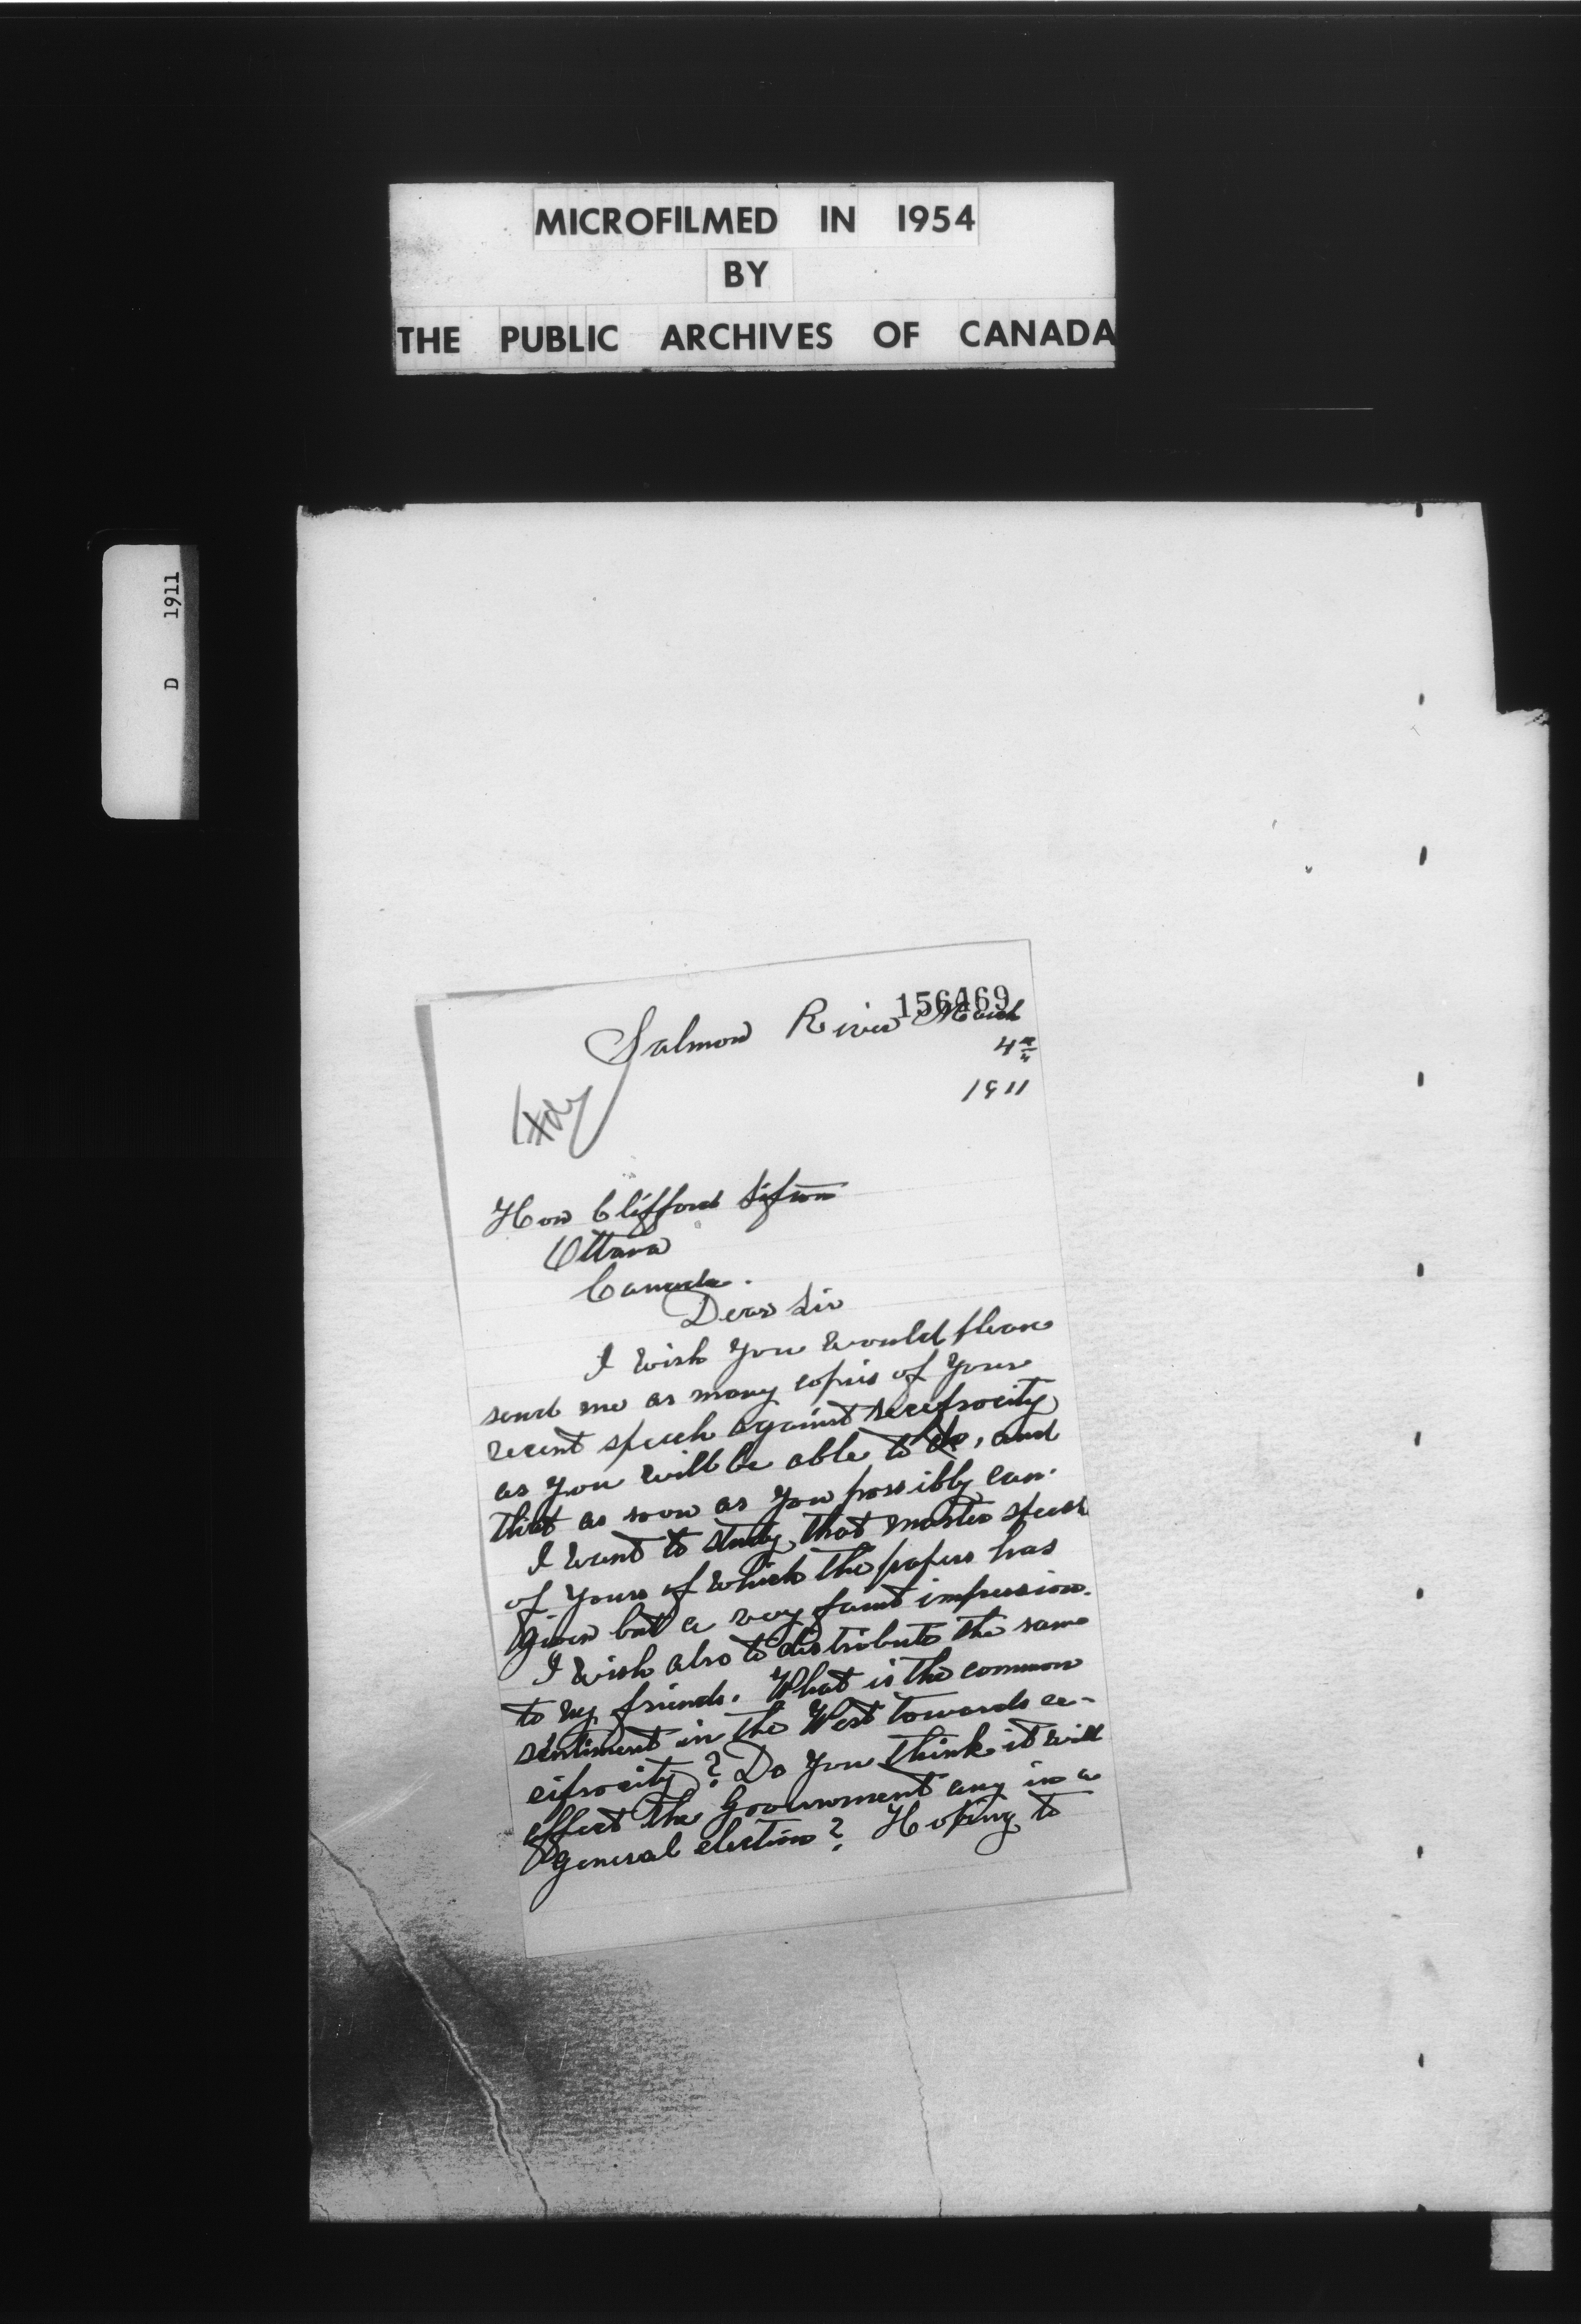 MICROFILMED IN 1954
BY
THE PUBLIC ARCHIVES OF CANADA
D 1911
156469
Salmon River March
4th
1911
Hon Clifford Sifton
Ottawa
Canada.
Dear Sir
I wish you would please
send me as many copies of your
recent speech against reciprocity
as you will be able to do, and
that as soon as you possibly can.
I want to study that master speech
of yours of which the papers has
given but a very faint impression.
I wish also to distribute the same
to my friends. What is the common
sentiment in the West towards re-
ciprocity? Do you think it will
effect the Government any in a
general election? Hoping to